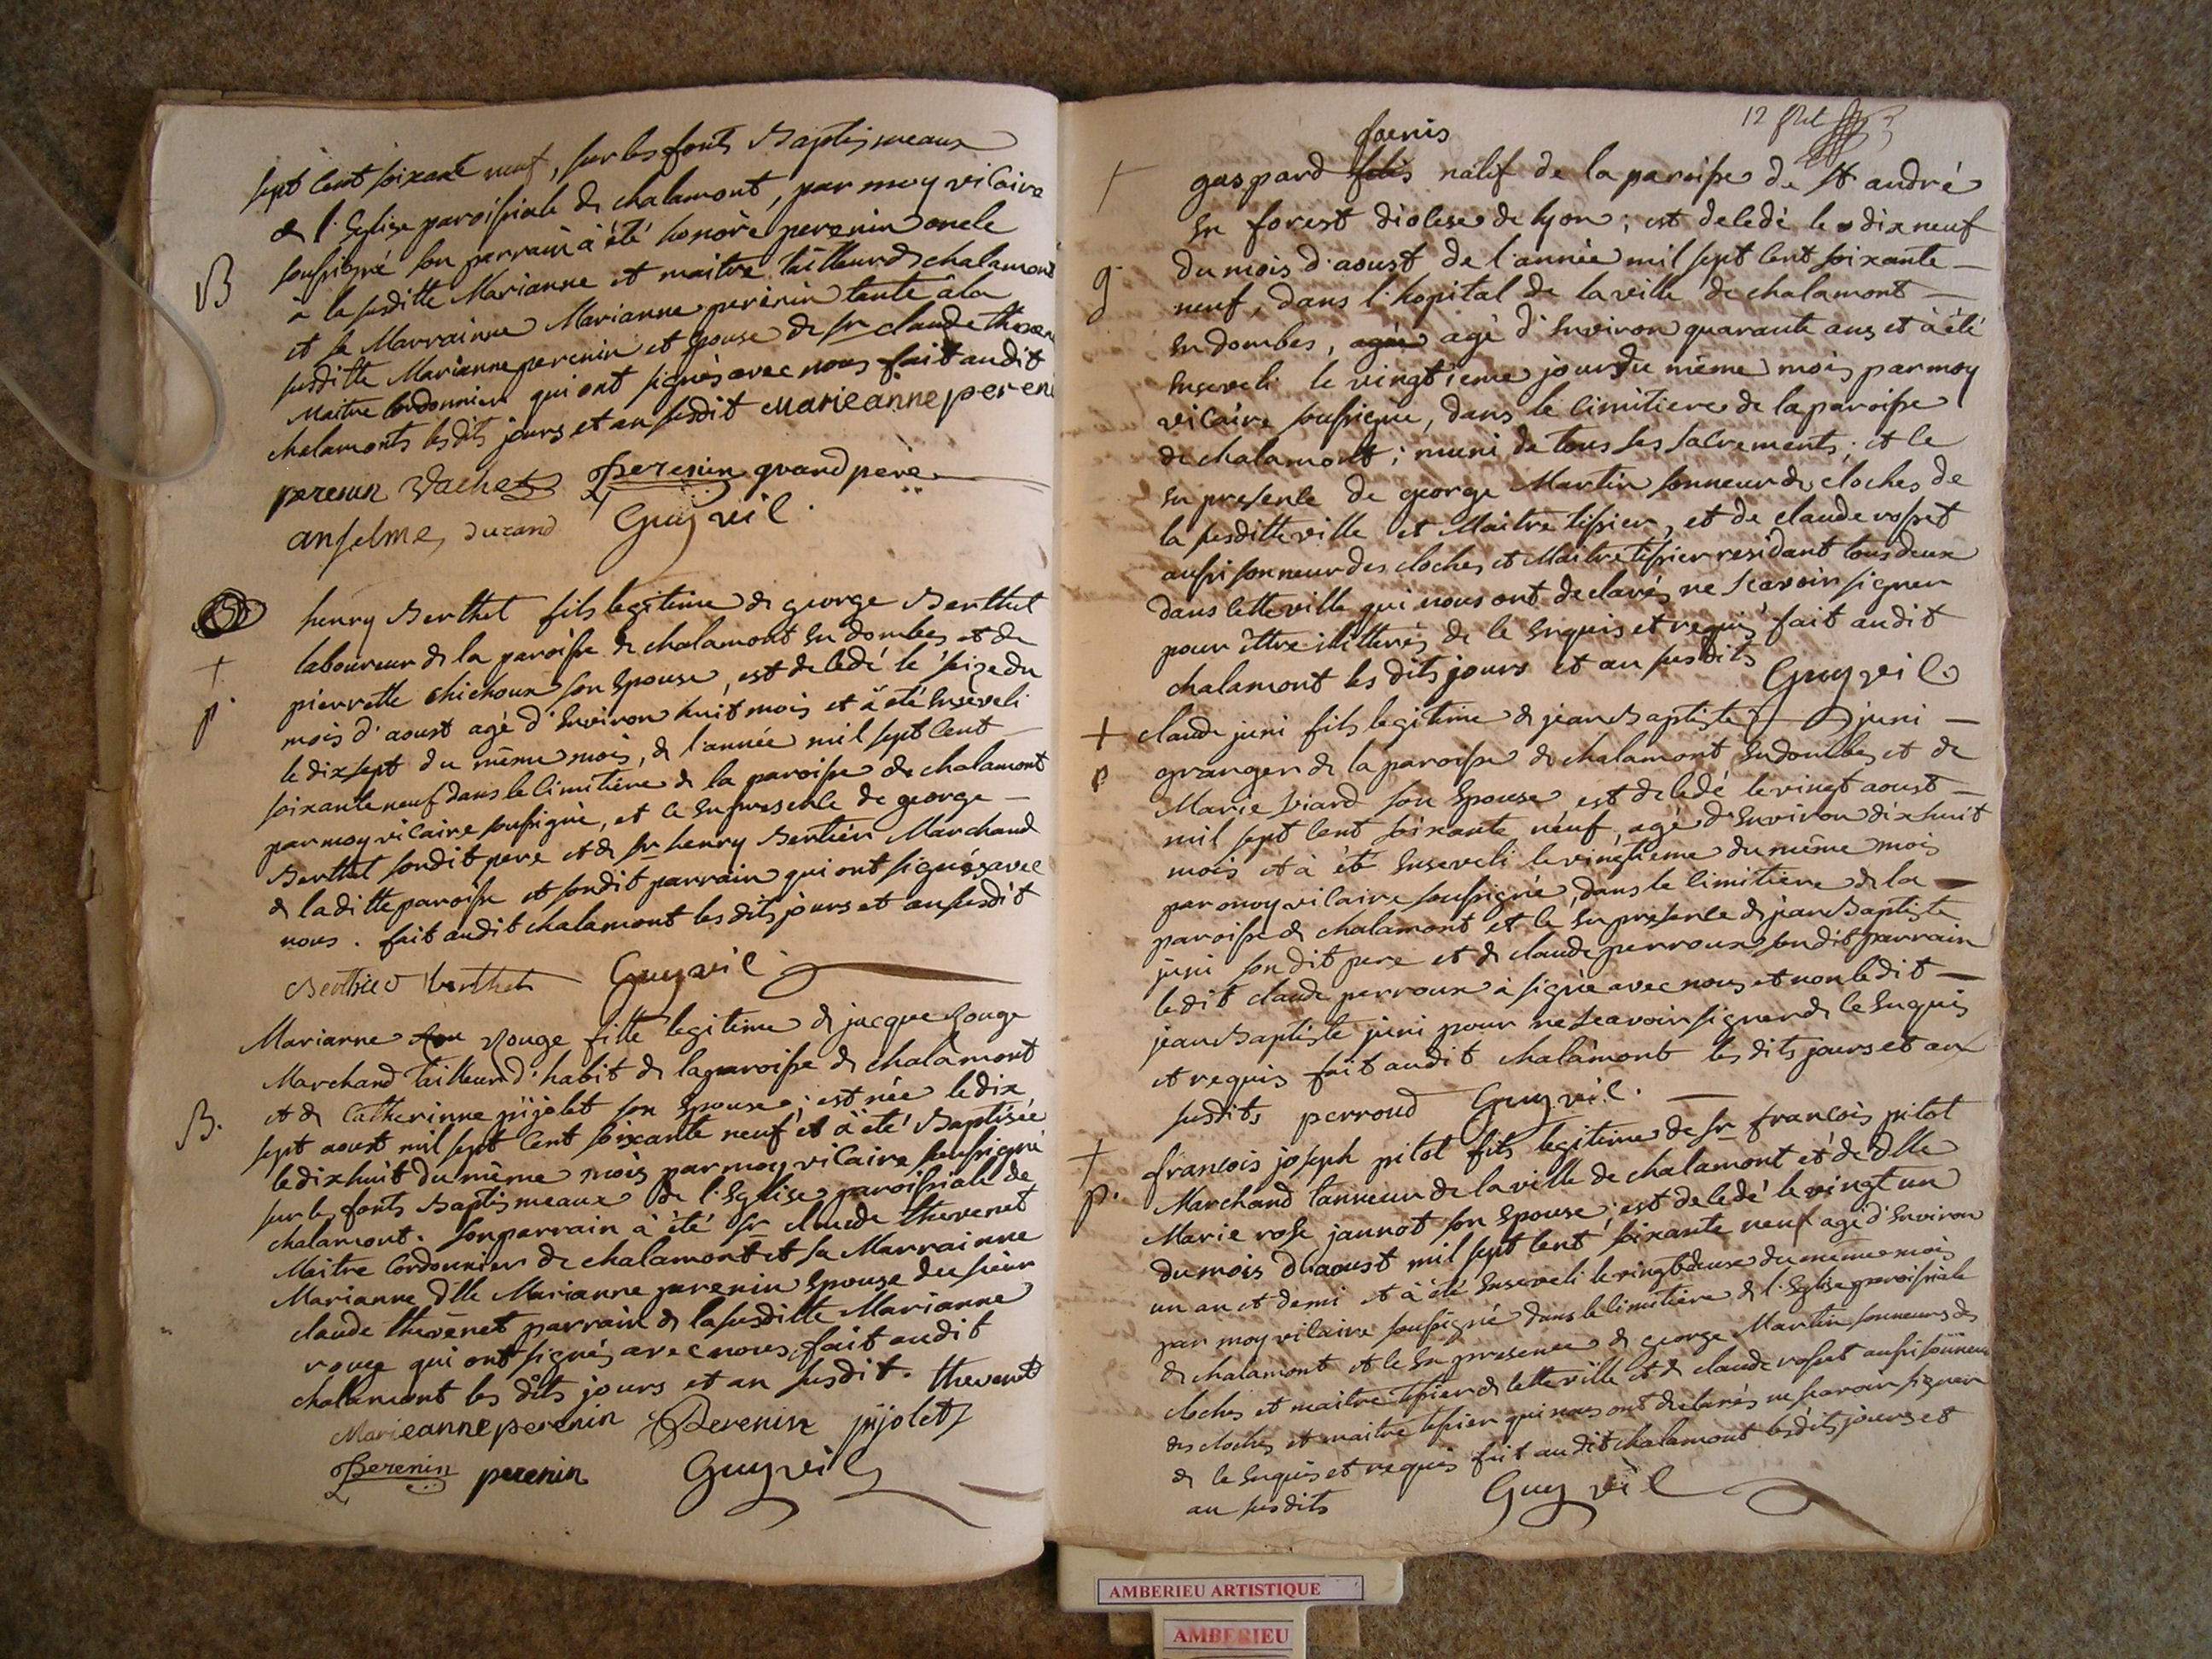 sept cent soixant neuf, sur les fonts Baptismeaux
de l'Eglise paroissiale de chalamont, par moy vicaire
B
soussigné son parrain à été honoré perenin oncle
à la susditte Marianne et maitre tailleur de chalamont
et sa Marrainne Marianne perenin tante à la
susditte Marianne perenin et Epouse de sr claude theven
Maitre Cordonnier qui ont signés avec nous fait audit
chalamonts les dits jours et an susdit Marieanne pereni
perenin Vachet Perenin grand pere
anselme, durand Guy vic.
henry Berthet fils legitime de george Berthet
+
laboureur de la paroisse de chalamont En dombes et de
pierrette chichoux son Epouse, est decedé le seize du
p.
mois d'aoust agé d'Environ huit mois et à été Enseveli
le dixsept du même mois, de l'année mil sept cent
soixante neuf dans le cimitiere de la paroisse de chalamont
par moy vicaire soussigné, et ce En presence de george
Berthet sondit pere et de sr henry Bertier Marchand
de laditte paroisse et sondit parrain qui ont signés avec
nous. fait audit chalamont les dits jours et an susdit
Berthier berthet Guy vic.
Marianne Rouge fille legitime de jacque Rouge
Marchand Tailleur d'habit de la paroisse de chalamont
B.
et de Catherinne pijolet son Epouse; est née le dix
sept aoust mil sept cent soixante neuf et à été Baptisée
le dixhuit du même mois par moy vicaire soussigné
sur les fonts Baptismeaux de l'Eglise paroissiale de
chalamont. son parrain à été sr claude thevenet
Maitre Cordonnier de chalamont et sa Marrainne
Marianne dlle Marianne perenin Epouse du sieur
claude thevenet parrain de la susditte Marianne
rouge qui ont signés avec nous, fait audit
chalamont les dits jours et an susdit. thevenet
Marieanne perenin Perenin pijolet
Perenin perenin Guy vic
12
foenis
+
gaspard natif de la paroisse de St andré
En forest diocese de lyon; est decedé le dix neuf
du mois d'aoust de l'année mil sept cent soixante
g
neuf, dans l'hopital de la ville de chalamont
En dombes, agé d'Environ quarante ans et à été
Enseveli le vingtieme jour du même mois par moy
vicaire soussigné, dans le cimitiere de la paroisse
de chalamont; muni de tous ses sacrements; et ce
En presence de george Martin sonneur de cloches de
la susditte ville et Maitre tissier, et de claude rosset
aussi sonneur des cloches et Maitre tissier residant tous deux
dans cette ville qui nous ont declarés ne scavoir signer
pour être illitterés de ce Enquis et requis fait audit
chalamont les dits jours et an susdits Guy vic
+
claude juni fils legitime de jean Baptiste juni
p
granger de la paroisse de chalamont En dombes et de
Marie Viard son Epouse est decedé le vingt aoust
mil sept cent soixante neuf, agé d'Environ dixhuit
mois et à été Enseveli le vingtieme du même mois
par moy vicaire soussigné, dans le cimitiere de la
paroisse de chalamont et ce En presence de jean Baptiste
juni son dit pere et de claude perroux son dit parrain
ledit claude perroux à signé avec nous et non ledit
jean Baptiste juni pour ne scavoir signer de ce Enquis
et requis fait audit chalamont les dits jours et an
susdits perroud Guy vic.
+
francois joseph pitot fils legitime de sr francois pitot
p.
Marchand tanneur de la ville de chalamont et de dlle
Marie rose jannot son Epouse; est decedé le vingt un
du mois d'aoust mil sept cent soixante neuf agé d'Environ
un an et demi et à été Enseveli le vingtdeux du même mois
par moy vicaire soussigné dans le cimitiere de l'Eglise paroissiale
de chalamont et ce En presence de george Martin sonneurs de
cloches et maitre tissier de cette ville et de claude rosset aussi sonneur
des cloches et maitre tissier qui nous ont declarés ne scavoir signer
de ce Enquis et requis fait audit chalamont les dits jours et
an susdits Guy vic
AMBERIEU ARTISTIQUE
AMBERIEU